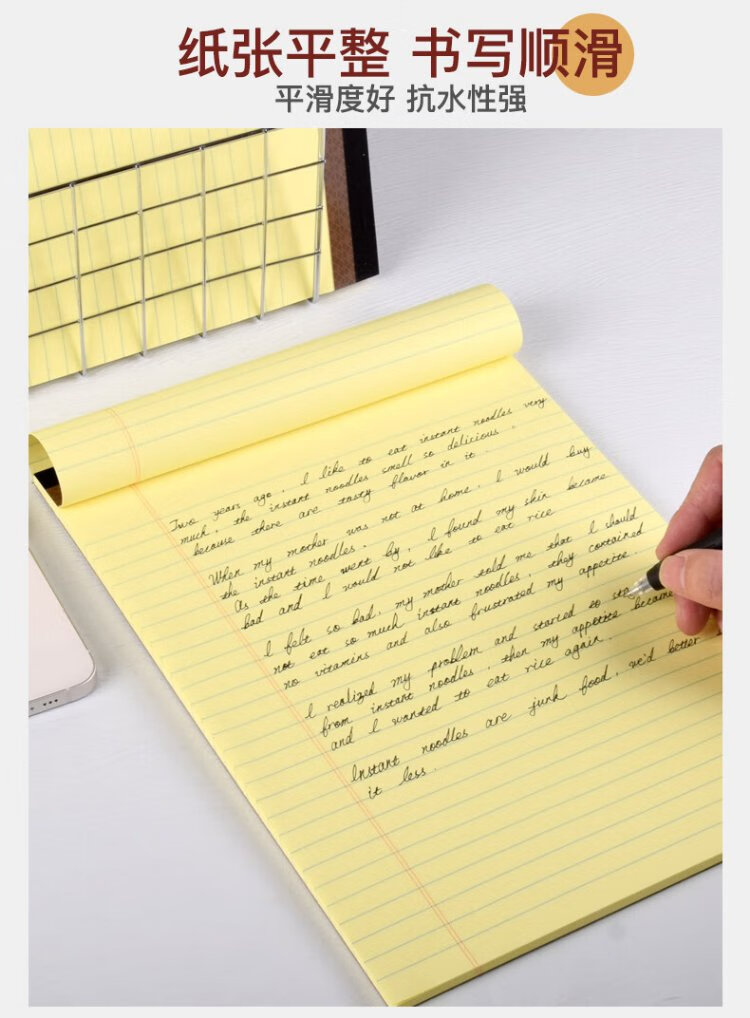 纸张平整 书写顺滑
平滑度好 抗水性强
Two years ago, I like to eat instant noodles very
much, the instant noodles smell so delicious.
because there are tasty flavor in it.
When my mother was not at home, I would buy
the instant noodles.
As the time went by, I found my skin became
bad and I would not like to eat rice
I felt so bad, my mother told me that I should
not eat so much instant noodles, they contained
no vitamins and also frustrated my appetite.
I realized my problem and started to
from instant noodles, then my appetite became
and I wanted to eat rice again.
Instant noodles are junk food, we'd better
it less.